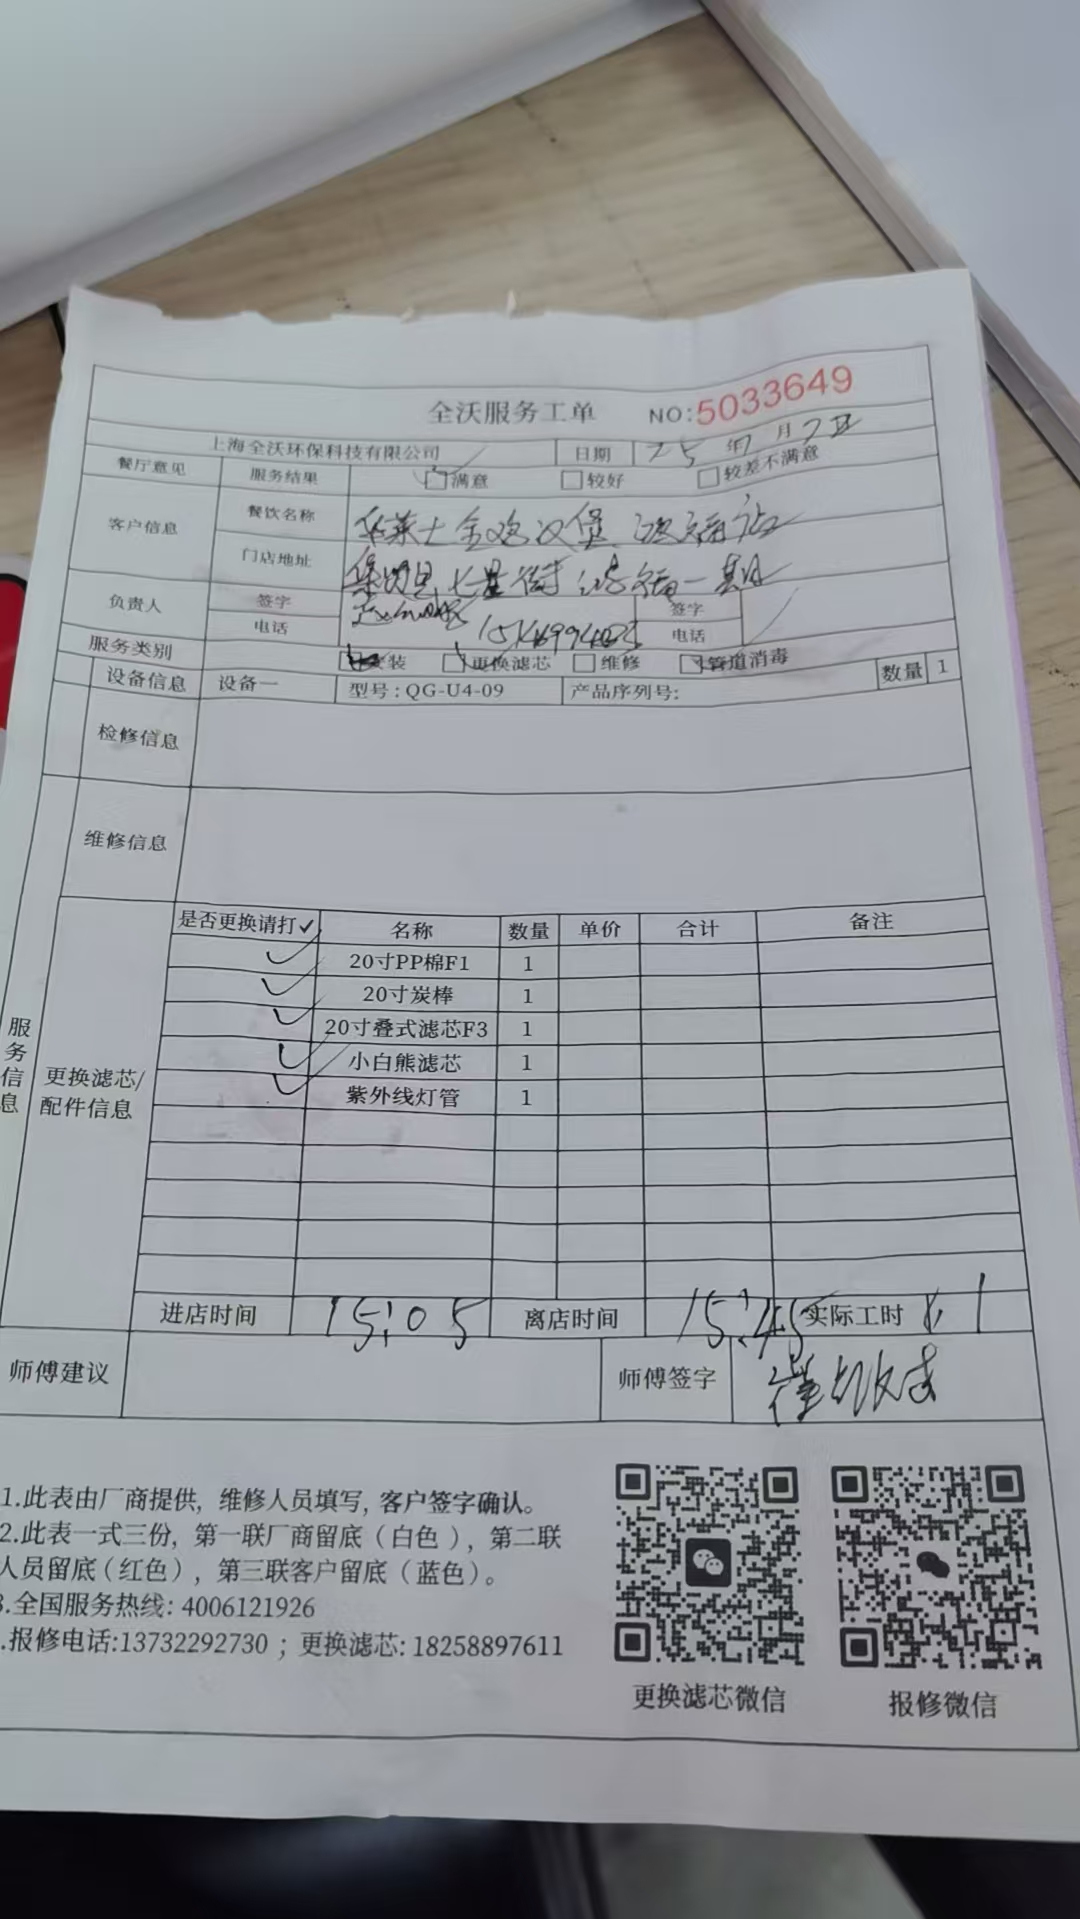 全沃服务工单 NO:5033649
上海全沃环保科技有限公司 日期 25年7月7日
餐厅意见 服务结果 满意 较好 较差不满意
客户信息 餐饮名称 华莱士全鸡汉堡 店
门店地址 七星街 一期
负责人 签字 签字
电话 电话
服务类别 安装 更换滤芯 维修 管道消毒
设备信息 设备一 型号:QG-U4-09 产品序列号: 数量 1
检修信息
维修信息
服务信息
更换滤芯/配件信息
是否更换请打✓ 名称 数量 单价 合计 备注
✓ 20寸PP棉F1 1
✓ 20寸炭棒 1
✓ 20寸叠式滤芯F3 1
✓ 小白熊滤芯 1
✓ 紫外线灯管 1
进店时间 15:05 离店时间 15:45 实际工时
师傅建议 师傅签字
1.此表由厂商提供, 维修人员填写, 客户签字确认。
2.此表一式三份, 第一联厂商留底（白色）, 第二联
人员留底（红色）, 第三联客户留底（蓝色）。
3.全国服务热线: 4006121926
.报修电话:13732292730 ; 更换滤芯: 18258897611
更换滤芯微信 报修微信